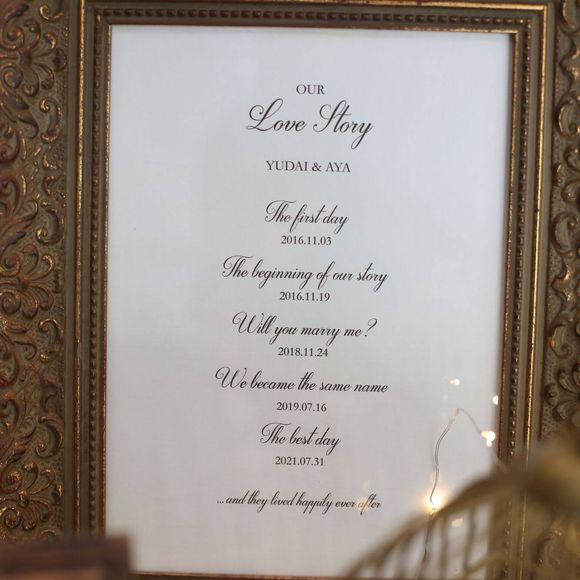 OUR
Love Story
YUDAI & AYA
The first day
2016.11.03
The beginning of our story
2016.11.19
Will you marry me?
2018.11.24
We became the same name
2019.07.16
The best day
2021.07.31
...and they lived happily ever after